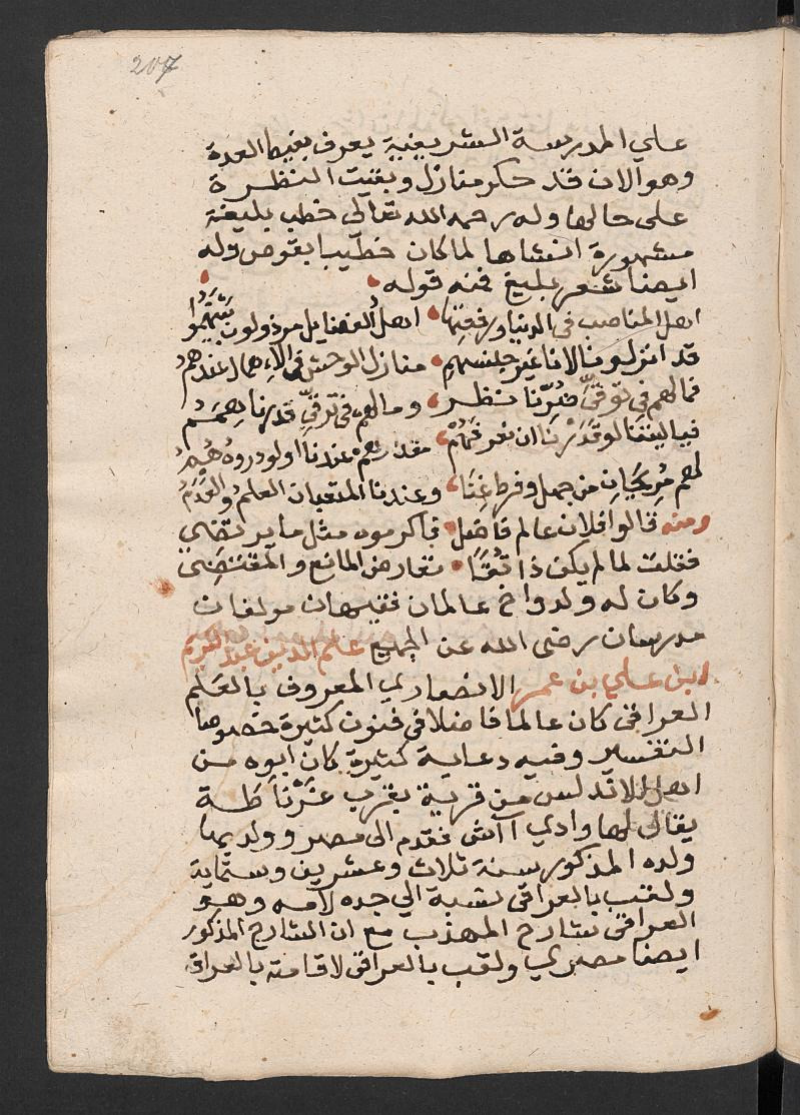 207
علي المدرسة الشريفية يعرف بغيط العدة
وهو الان قد حكر منازل وبقيت المنظرة
على حالها وله رحمه الله تعالى خطب بليغة
مشهورة انشاها لما كان خطيبا بقوص وله
ايضا شعر بليغ فمنه قوله
اهل المناصب في الدنيا ورفعتها اهلُ الفضايل مرذولون بينهُمُ
قد انزلونا لانا غير جنسهمِ منازل الوحش في الاهمال عندهم
فما لهم في توقّي ضُرّنا نظر وما لهم في ترقّي قدرنا هِمَمُ
فياليتنا لو قَدَرْنا ان نعرفهُمْ مقدارهم عندنا اولودروه هُمُ
لهم مُرِيحانِ من جهل وفرط غِنًا وعندنا المتعبان العلمُ والعَدَمُ
ومنه قالوا فلان عالم فاضل فاكرموه مثل ما يرتضي
فقلت لما لم يكن ذا تُقًا تعارض المانع والمقتضى
وكان له ولد واخ عالمان فقيهان مولفان
مدرسان رضى الله عن الجميع علم الدين عبد الكريم
ابن علي بن عمر الانصاري المعروف بالعَلم
العراقي كان عالما فاضلا في فنون كثيرة خصوصا
التفسير وفيه دعابة كثيرة كان ابوه من
اهل الاندلس من قرية بقرب غَرْناَطة
يقال لها وادي آش فقدم الى مصر وولد بها
ولده المذكور سنة ثلاث وعشرين وستماية
ولقب بالعراقي نسبة الي جده لامه وهو
العراقي شارح المهذب مع ان الشارح المذكور
ايضا مصري ولقب بالعراقي لاقامته بالعراق